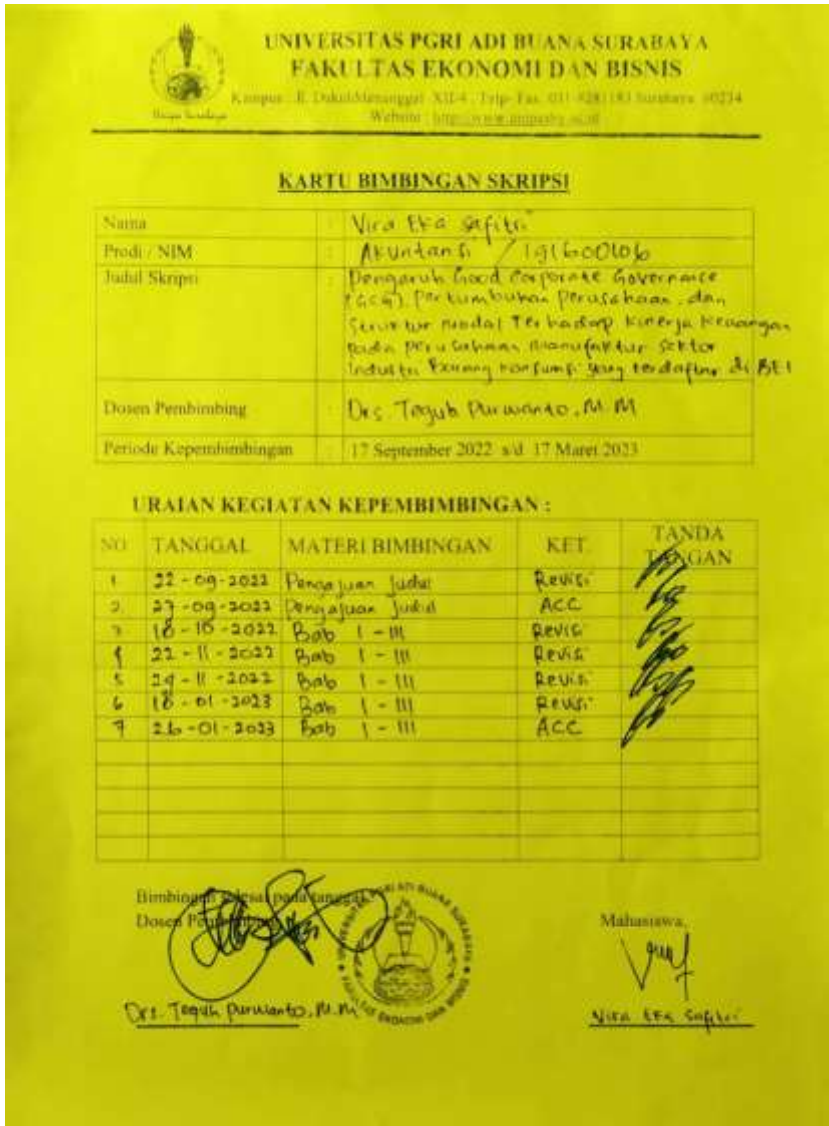 UNIVERSITAS PGRI ADI BUANA SURABAYA
FAKULTAS EKONOMI DAN BISNIS
Kampus : Jl. Dukuh Menanggal XII-4, Telp-Fax. 031-8281183 Surabaya 60234
Website :
KARTU BIMBINGAN SKRIPSI
Nama : Vira Eka Safitri
Prodi / NIM : Akuntansi / 191600106
Judul Skripsi : Pengaruh Good Corporate Governance
(GCG), Pertumbuhan perusahaan, dan
Struktur modal Terhadap Kinerja Keuangan
pada perusahaan manufaktur sektor
Industri Barang konsumsi yang terdaftar di BEI
Dosen Pembimbing : Drs. Teguh Purwanto, M.M
Periode Kepembimbingan : 17 September 2022 s/d 17 Maret 2023
URAIAN KEGIATAN KEPEMBIMBINGAN :
NO TANGGAL MATERI BIMBINGAN KET. TANDA TANGAN
1 22-09-2022 Pengajuan Judul Revisi
2. 27-09-2022 Pengajuan Judul ACC
3 18-10-2022 Bab I - III Revisi
4 22-11-2022 Bab I - III Revisi
5 29-11-2022 Bab I - III Revisi
6 18-01-2023 Bab I - III Revisi
7 26-01-2023 Bab I - III ACC
Bimbingan selesai pada tanggal:
Dosen Pembimbing
Mahasiswa,
UNIVERSITAS PGRI ADI BUANA SURABAYA
FAKULTAS EKONOMI DAN BISNIS
Drs. Teguh Purwanto, M.M
Vira Eka Safitri